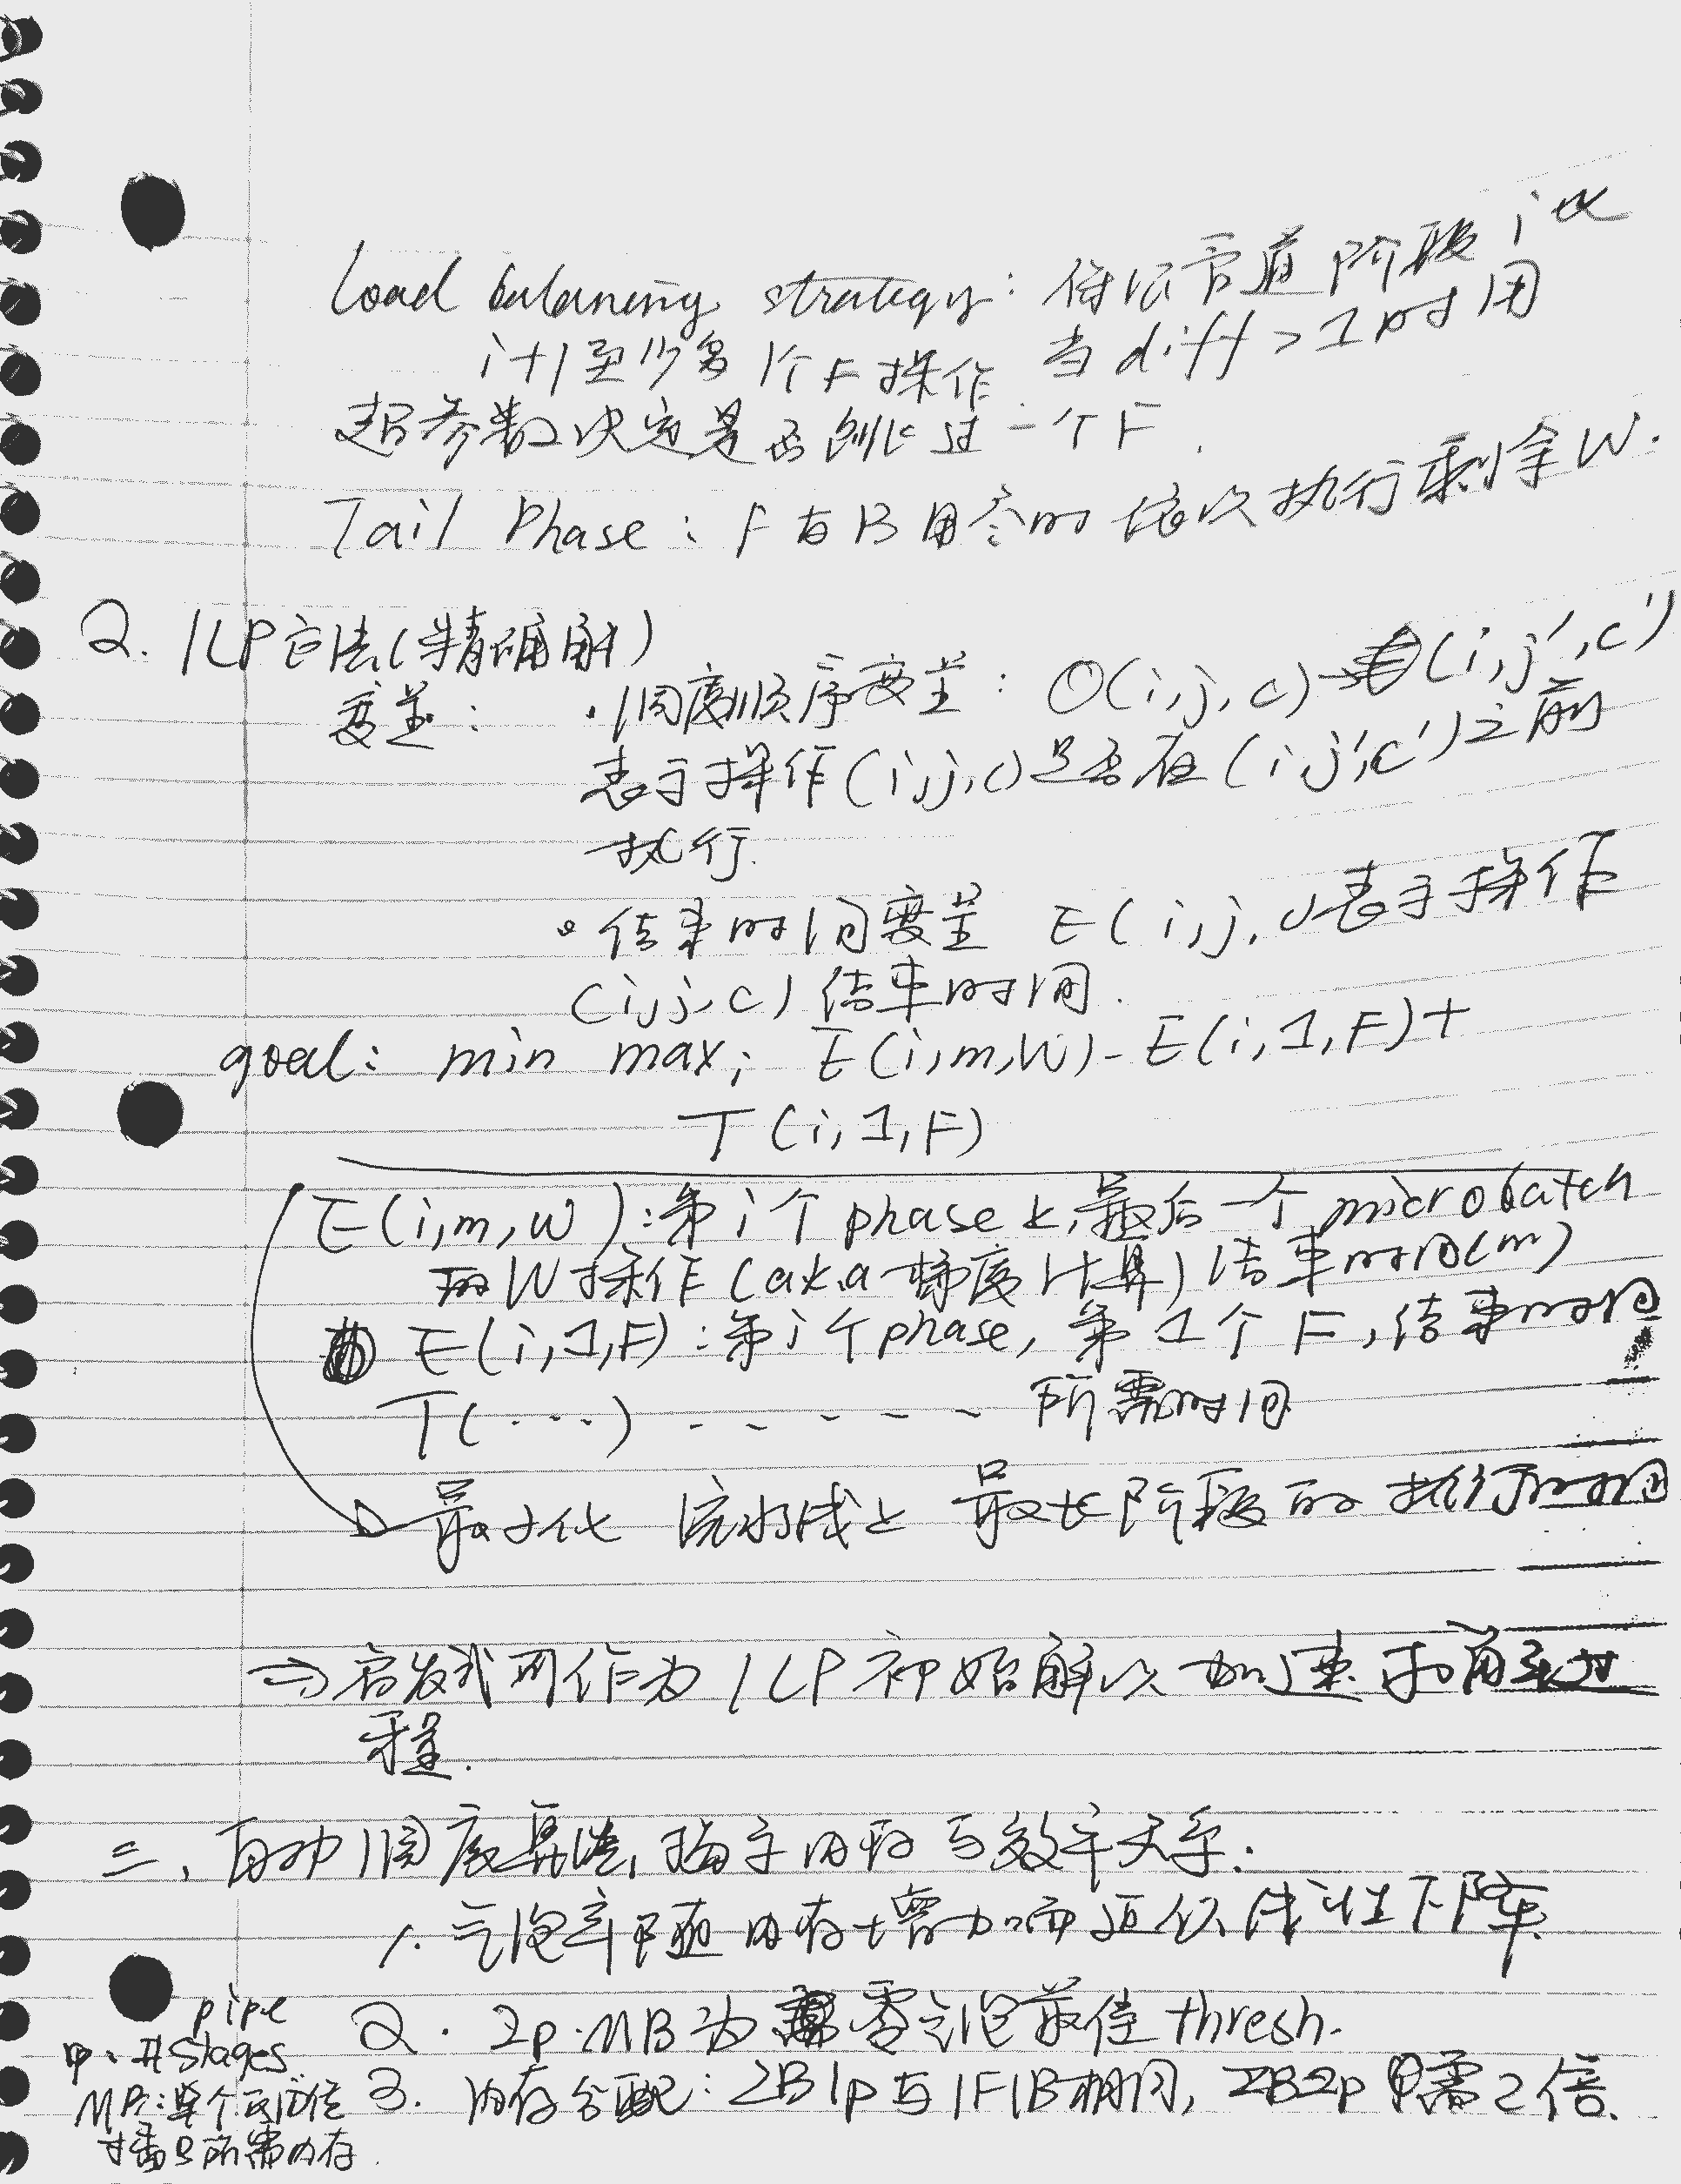 Load balancing strategy: 保证管道阶段 i 比
i+1 至少多 1个 F 操作 当 diff > 1 时用
超参数决定是否跳过一个 F.
Tail Phase: F 与 B 用尽时 依次执行剩余 W.
2. ILP方法(精确解)
变量: · 调度顺序变量: O(i,j,c)→(i,j',c')
表示操作(i,j,c)是否在(i,j',c')之前
执行.
· 结束时间变量 E(i,j,c)表示操作
(i,j,c)结束时间.
goal: min maxi E(i,m,W)-E(i,1,F)+
T(i,1,F)
E(i,m,W):第i个phase上,最后一个microbatch
的W操作(aka梯度计算)结束时间(m)
E(i,1,F):第i个phase,第1个F,结束时间
T(···) - - - - - 所需时间
最小化 流水线上 最长阶段的 执行时间
⇒启发式可作为ILP初始解以加速求解过
程.
三、自动调度算法,揭示内存与效率关系:
1. 气泡率随内存增加而近似线性下降.
2. 2p·MB为零气泡最佳thresh.
3. 内存分配: ZB1p与1F1B相同, ZB2p需2倍.
pipe
p: #stages
MB:单个反向传
播B所需内存.